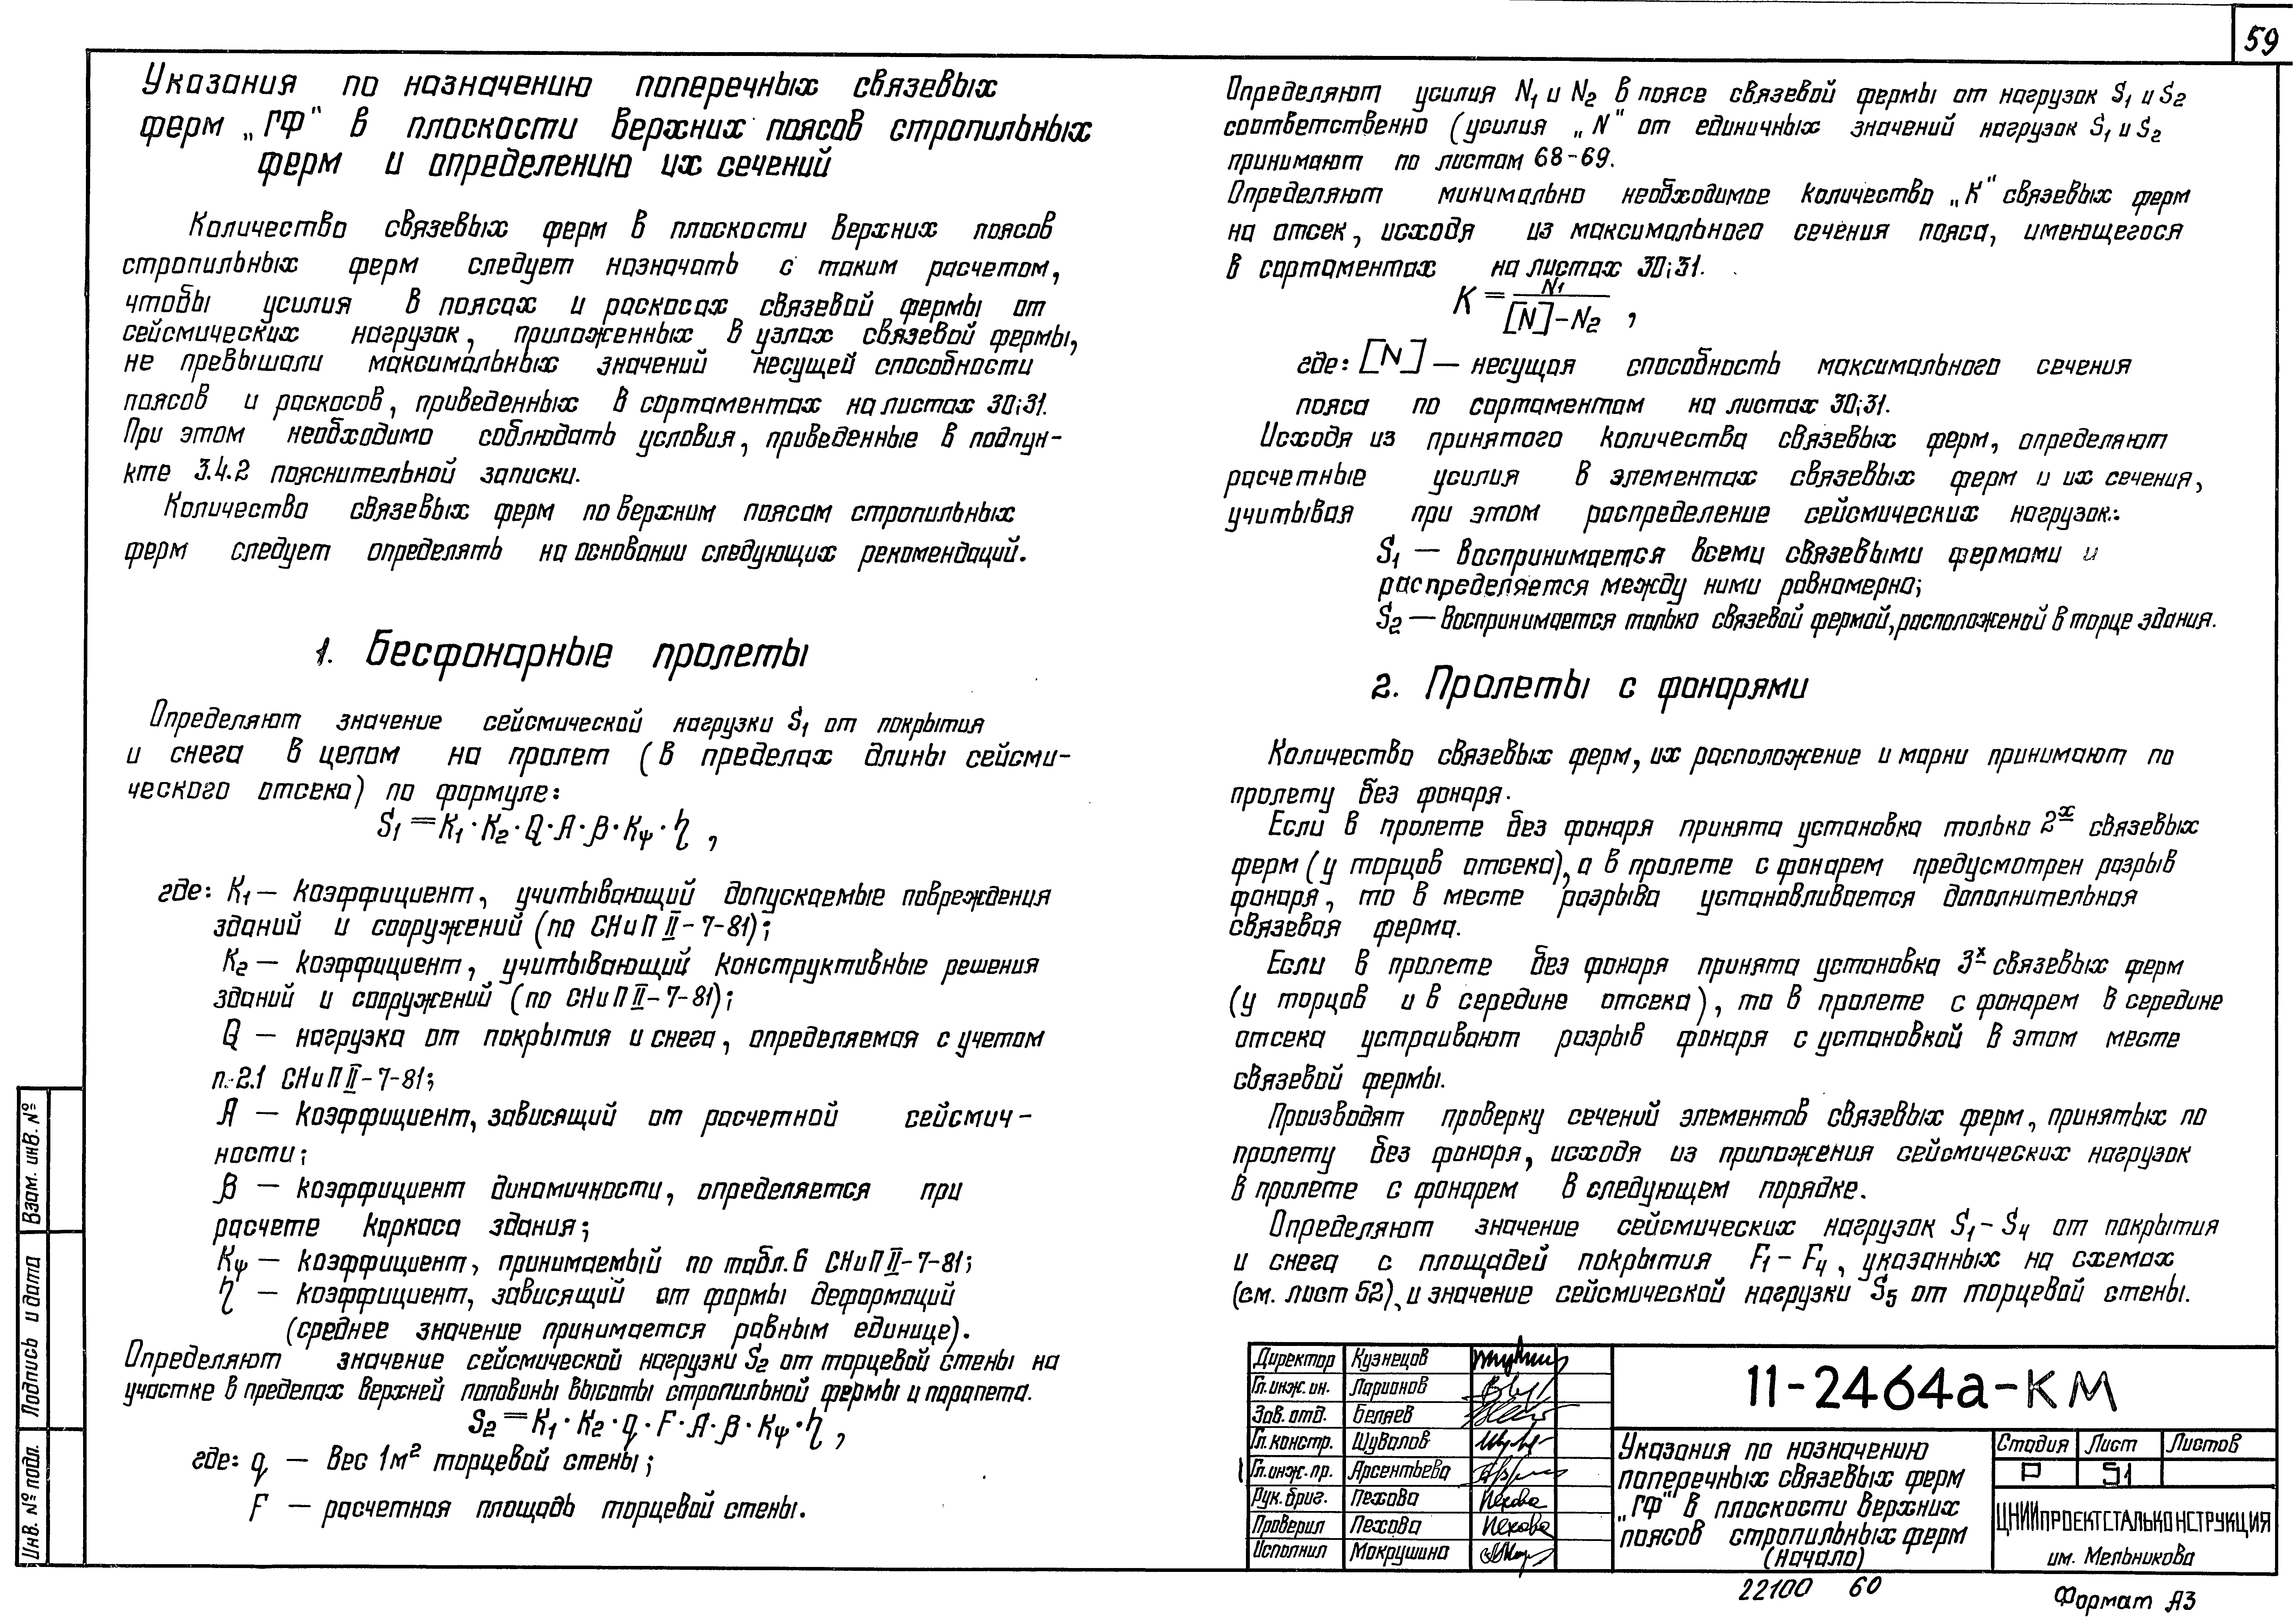 59
Указания по назначению поперечных связевых
ферм „ГФ" в плоскости верхних поясов стропильных
ферм и определению их сечений
Количество связевых ферм в плоскости верхних поясов
стропильных ферм следует назначать с таким расчетом,
чтобы усилия в поясах и раскосах связевой фермы от
сейсмических нагрузок, приложенных в узлах связевой фермы,
не превышали максимальных значений несущей способности
поясов и раскосов, приведенных в сортаментах на листах 30;31.
При этом необходимо соблюдать условия, приведенные в подпун-
кте 3.4.2 пояснительной записки.
Количество связевых ферм по верхним поясам стропильных
ферм следует определять на основании следующих рекомендаций.
1. Бесфонарные пролеты
Определяют значение сейсмической нагрузки S₁ от покрытия
и снега в целом на пролет (в пределах длины сейсми-
ческого отсека) по формуле:
S₁ = K₁·K₂·Q·A·β·Kψ·η ,
где: K₁ — коэффициент, учитывающий допускаемые повреждения
зданий и сооружений (по СНиП II-7-81);
K₂ — коэффициент, учитывающий конструктивные решения
зданий и сооружений (по СНиП II-7-81);
Q — нагрузка от покрытия и снега, определяемая с учетом
п. 2.1 СНиП II-7-81;
A — коэффициент, зависящий от расчетной сейсмич-
ности;
β — коэффициент динамичности, определяется при
расчете каркаса здания;
Kψ — коэффициент, принимаемый по табл. 6 СНиП II-7-81;
η — коэффициент, зависящий от формы деформаций
(среднее значение принимается равным единице).
Определяют значение сейсмической нагрузки S₂ от торцевой стены на
участке в пределах верхней половины высоты стропильной фермы и парапета.
S₂ = K₁·K₂·q·F·A·β·Kψ·η ,
где: q — вес 1м² торцевой стены;
F — расчетная площадь торцевой стены.
Определяют усилия N₁ и N₂ в поясе связевой фермы от нагрузок S₁ и S₂
соответственно (усилия „N" от единичных значений нагрузок S₁ и S₂
принимают по листам 68-69.
Определяют минимально необходимое количество „К" связевых ферм
на отсек, исходя из максимального сечения пояса, имеющегося
в сортаментах на листах 30;31.
K = N₁ / ([N]-N₂) ,
где: [N] — несущая способность максимального сечения
пояса по сортаментам на листах 30;31.
Исходя из принятого количества связевых ферм, определяют
расчетные усилия в элементах связевых ферм и их сечения,
учитывая при этом распределение сейсмических нагрузок:
S₁ — воспринимается всеми связевыми фермами и
распределяется между ними равномерно;
S₂ — воспринимается только связевой фермой, расположеной в торце здания.
2. Пролеты с фонарями
Количество связевых ферм, их расположение и марки принимают по
пролету без фонаря.
Если в пролете без фонаря принята установка только 2ˣ связевых
ферм (у торцов отсека), а в пролете с фонарем предусмотрен разрыв
фонаря, то в месте разрыва устанавливается дополнительная
связевая ферма.
Если в пролете без фонаря принята установка 3ˣ связевых ферм
(у торцов и в середине отсека), то в пролете с фонарем в середине
отсека устраивают разрыв фонаря с установкой в этом месте
связевой фермы.
Производят проверку сечений элементов связевых ферм, принятых по
пролету без фонаря, исходя из приложения сейсмических нагрузок
в пролете с фонарем в следующем порядке.
Определяют значение сейсмических нагрузок S₁ – S₄ от покрытия
и снега с площадей покрытия F₁ – F₄, указанных на схемах
(см. лист 52), и значение сейсмической нагрузки S₅ от торцевой стены.
Директор Кузнецов
Гл. инж. ин. Ларионов
Зав. отд. Беляев
Гл. констр. Шувалов
Гл. инж. пр. Арсентьева
Рук. бриг. Пехова Пехова
Проверил Пехова Пехова
Исполнил Мокрушина
11-2464а-КМ
Указания по назначению
поперечных связевых ферм
„ГФ" в плоскости верхних
поясов стропильных ферм
(начало)
Стадия Лист Листов
Р 51
ЦНИИПРОЕКТСТАЛЬКОНСТРУКЦИЯ
им. Мельникова
22100 60
Формат А3
Взам. инв. №
Подпись и дата
Инв. № подл.